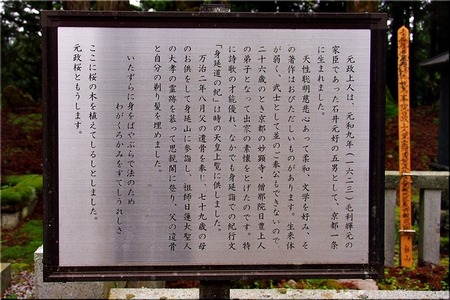 元政上人は、元和九年(一六二三)毛利輝元の
家臣であった石井元好の五男として、京都一条
に生れました。
天性聡明慈悲心あって柔和、文学を好み、そ
の著作はおびただしいものがあります。生来体
が弱く、武士として並のご奉公もできないので、
二十六歳のとき京都の妙顕寺・僧那院日豊上人
の弟子となって出家の素懐をとげたのです。特
に詩歌の才能優れ、なかでも身延詣での紀行文
「身延道の紀」は時の天皇上覧に供しました。
万治二年八月父の遺骨を奉じ、七十九歳の母
のお供をして身延山に参詣し、祖師日蓮大聖人
の大孝の霊跡を慕って思親閣に登り、父の遺骨
と自分の剃り髪を埋めました。
いたずらに身をばやぶらで法のため
わがくろかみをすてしうれしさ
ここに桜の木を植えてしるしとしました。
元政桜ともうします。